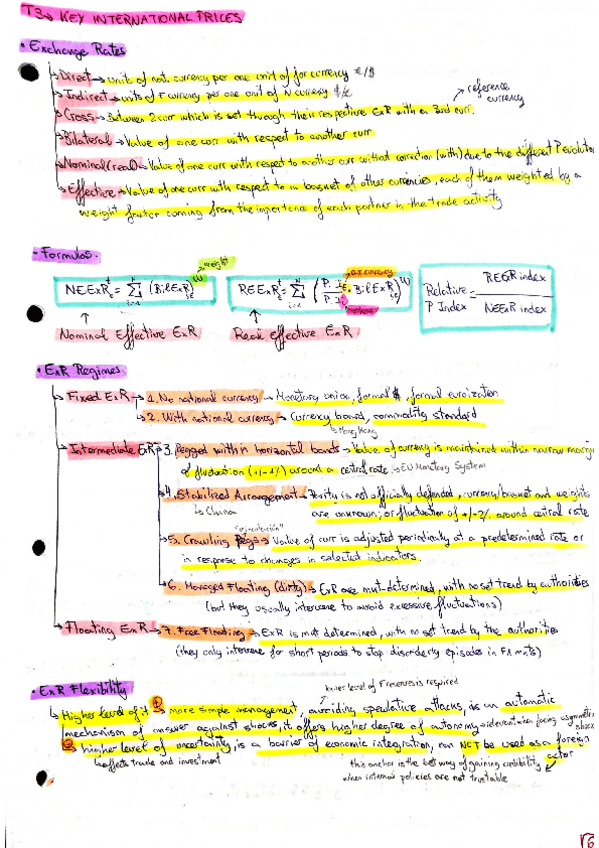 T3→ KEY INTERNATIONAL PRICES
• Exchange Rates
Direct → units of nat. currency per one unit of for currency €/$
Indirect → units of F currency per one unit of N currency $/€
reference currency
Cross → Between 2 curr which is set through their respective ExR with a 3rd curr.
Bilateral → Value of one curr with respect to another curr
Nominal (real) → Value of one curr with respect to another curr without correction (with) due to the different P evolution
Effective → Value of one curr with respect to a basquet of other currencies, each of them weighted by a
weight factor coming from the importance of each partner in the trade activity
• Formulas.
weight
NEExR = Σ (BilExR)^W
REExR = Σ (P.I. / P.I. · BilExR)^W
Relative P Index = REER index / NEExR index
Nominal Effective ExR
Real Effective ExR
• ExR Regimes.
Fixed ExR → 1. No national currency → Monetary union, formal $, formal euroization
2. With national currency → Currency board, commodity standard
Hong Kong
Intermediate ExR → 3. Pegged within horizontal bands → Value of currency is maintained within narrow margins
of fluctuation (+/-1%) around a central rate. → EU Monetary System
4. Stabilized Arrangement → Parity is not officially defended, currency/basket and weights
China
are unknown; or fluctuation of +/-2% around central rate
5. Crawling Pegs → Value of curr is adjusted periodically at a predetermined rate or
in response to changes in selected indicators.
6. Managed Floating (dirty) → ExR are mkt-determined, with no set trend by authorities
(but they usually intervene to avoid excessive fluctuations)
Floating ExR → 7. Free Floating → ExR is mkt determined, with no set trend by the authorities
(they only intervene for short periods to stop disorderly episodes in FX mkts)
• ExR Flexibility
lower level of F reserves is required
Higher level of it ① → more simple management, avoiding speculative attacks, is an automatic
mechanism of answer against shocks, it offers higher degree of autonomy → relevant when facing asymmetric shocks
② → higher level of uncertainty, is a barrier of economic integration, can NOT be used as a foreign
affects trade and investment
this anchor is the best way of gaining credibility
when internal policies are not trustable
16